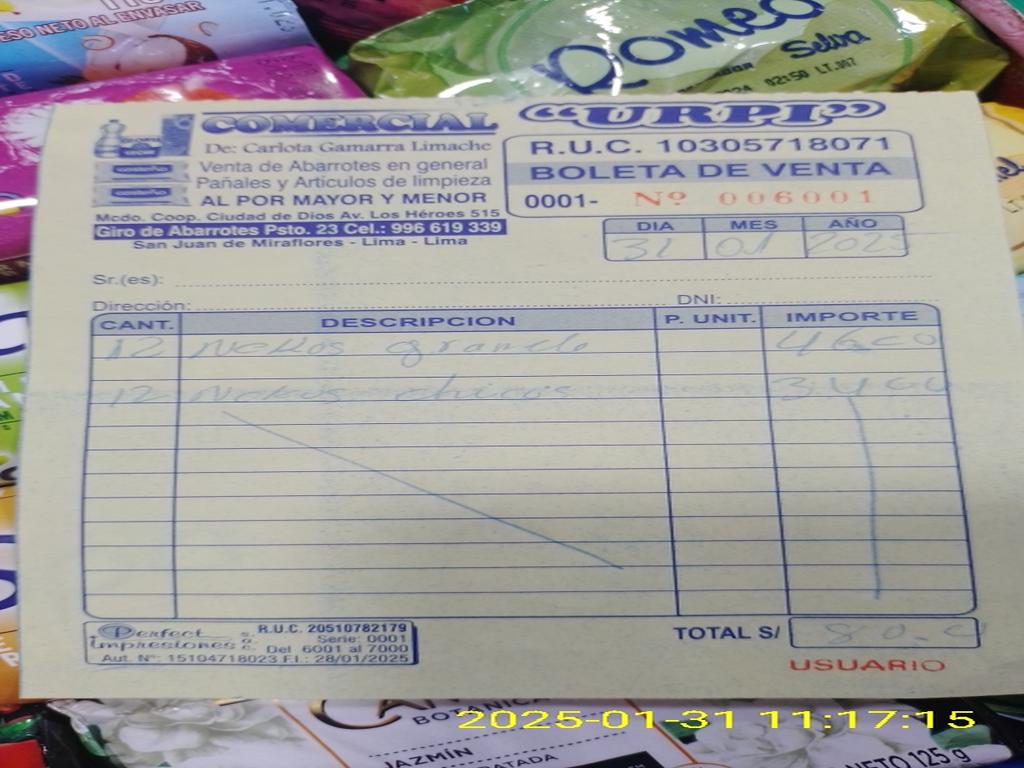 ESO NETO AL ENVASAR
Romeo
Selva
COMERCIAL "URPI"
De: Carlota Gamarra Limache
Venta de Abarrotes en general
Pañales y Artículos de limpieza
AL POR MAYOR Y MENOR
Mcdo. Coop. Ciudad de Dios Av. Los Héroes 515
Giro de Abarrotes Psto. 23 Cel.: 996 619 339
San Juan de Miraflores - Lima - Lima
R.U.C. 10305718071
BOLETA DE VENTA
0001- Nº 006001
DIA MES AÑO
31 01 2025
Sr.(es):
Dirección: DNI:
CANT. DESCRIPCION P. UNIT. IMPORTE
12 Nekos grande 46.00
12 Nekos chicos 34.00
TOTAL S/ 80.0
USUARIO
Perfect impresiones s. a. c.
R.U.C. 20510782179
Serie: 0001
Del 6001 al 7000
Aut. Nº: 15104718023 F.I.: 28/01/2025
BOTANICA
JAZMÍN
NETO 125 g
2025-01-31 11:17:15